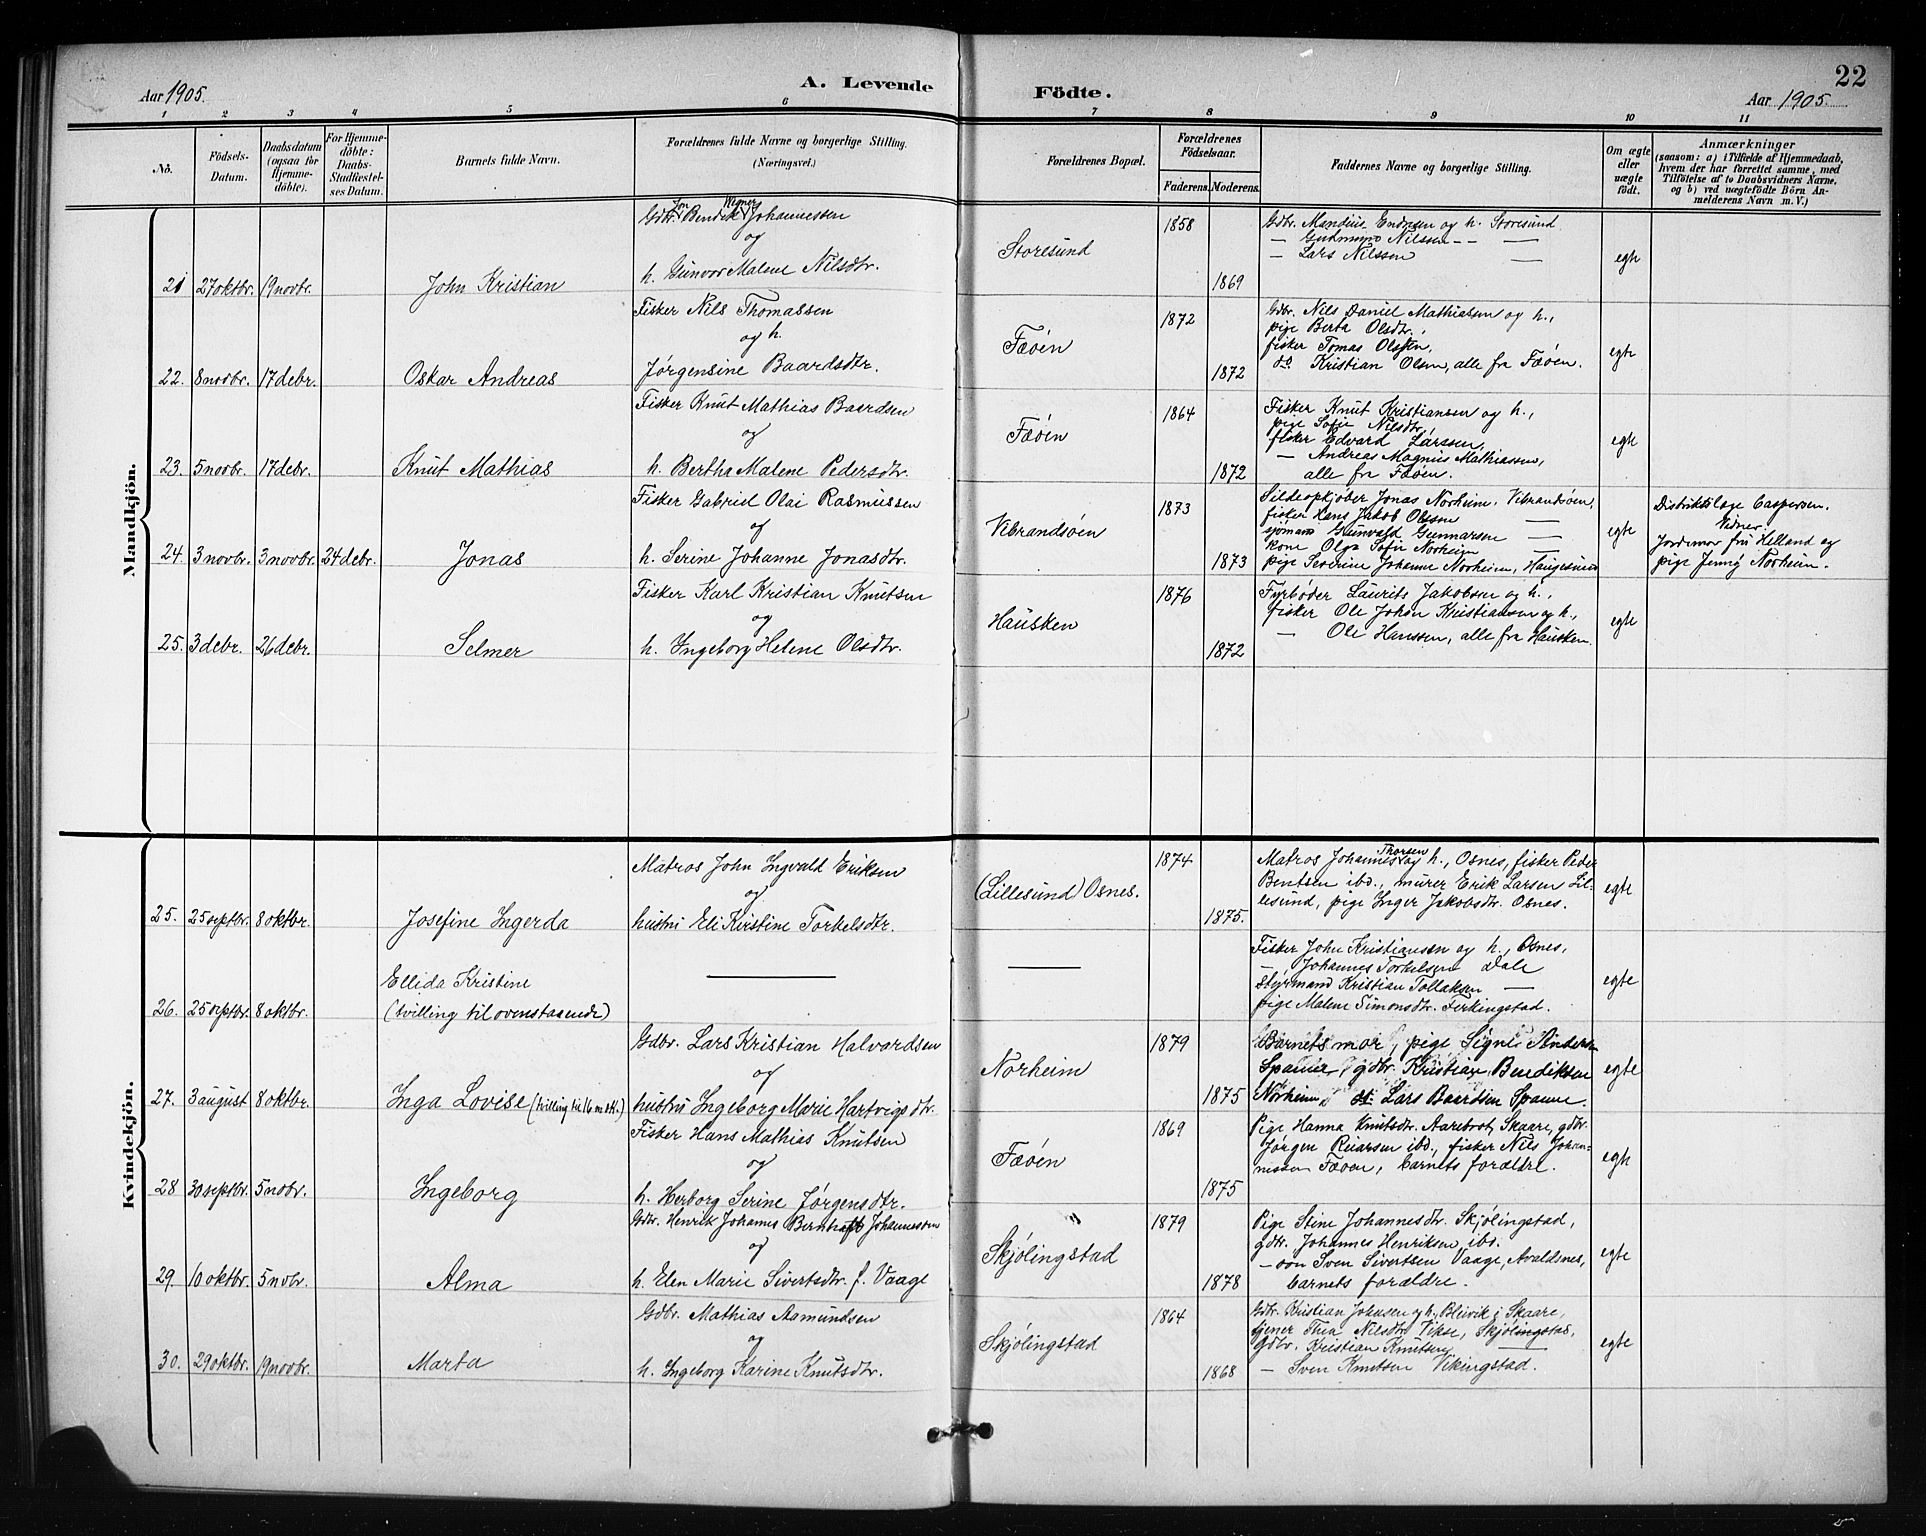 22
Aar 1905.
A. Levende
Födte.
Aar 1905.
1 2 3 4 5 6 7 8 9 10 11
No.
Födsels-
Datum.
Daabsdatum
(ogsaa for
Hjemme-
döbte).
For Hjemme-
döbte:
Daabs-
Stadfæstel-
ses Datum.
Barnets fulde Navn.
Forældrenes fulde Navne og borgerlige Stilling.
(Næringsvei.)
Forældrenes Bopæl.
Forældrenes
Födselsaar.
Faderens. Moderens.
Faddernes Navne og borgerlige Stilling.
Om ægte
eller
uægte
födt.
Anmærkninger
(saasom: a) i Tilfælde af Hjemmedaab,
hvem der har forrettet samme, med
Tilföielse af to Daabsvidners Navne,
og b) ved uægtefödte Börn An-
melderens Navn m. V.)
Mandkjön.
21 27 oktbr. 19 novbr. John Kristian
Gdbr. Bendik Johannessen
og
h. Gunvor Malene Nilsdtr.
Storesund
1858
1869
Gdbr. Mandius Endresen og h. Storesund
— Gudmund Nilssen — —
— Lars Nilssen —
egte
22. 8 novbr. 17 debr. Oskar Andreas
Fisker Nils Thomassen
og h.
Jørgensine Baardsdtr.
Fæøen
1872
1872
Gdbr. Nils Daniel Mathiasen og h.,
pige Berta Olsdtr.
fisker Tomas Olsen,
do Kristian Olsen, alle fra Fæøen.
egte
23. 5 novbr. 17 debr. Knut Mathias
Fisker Knut Mathias Baardsen
og
h. Bertha Malene Pedersdtr.
Fæøen
1864
1872
Fisker Knut Kristianssen og h.,
pige Sofie Nilsdtr.
fisker Edvard Larssen,
— Andreas Magnus Mathiassen,
alle fra Fæøen.
egte
24. 3 novbr. 3 novbr. 24 debr. Jonas
Fisker Gabriel Olai Rasmussen
og
h. Serine Johanne Jonasdtr.
Vibrandsøen
1873
1873
Sildeopkjøber Jonas Norheim, Vibrandsøen,
fisker Hans Jakob Olsen —
sjømand Gunvald Gunnarsen —
kone Olga Sofie Norheim —
pige Severine Johanne Norheim, Haugesund
egte
Distriktslæge Caspersen.
Vidner.
Jordemor fru Helland og
pige Jenny Norheim.
25. 3 debr. 26 debr. Selmer
Fisker Karl Kristian Knutsen
og
h. Ingeborg Helene Olsdtr.
Hausken
1876
1872
Fyrbøder Laurits Jakobsen og h.,
fisker Ole Johan Kristiansen og h.,
— Ole Hanssen, alle fra Hausken.
egte
Kvindekjön.
25. 25 septbr. 8 oktbr. Josefine Ingerda
Matros John Ingvald Eriksen
og
hustru Eli Kirstine Torkelsdtr.
(Lillesund) Osnes.
1874
1875.
Thorsen
Matros Johannes og h., Osnes, fisker Peder
Bentsen ibd., murer Erik Larsen Lil-
lesund, pige Inger Jakobsdtr. Osnes.
egte
26. 25 septbr. 8 oktbr. Ellida Kristine
(tvilling til ovenstaaende)
—
—
Fisker John Kristiansen og h., Osnes,
— Johannes Torkelsen Dale
styrmand Kristian Tollaksen —
pige Malene Simonsdtr. Ferkingstad.
egte
27. 3 august 8 oktbr. Inga Lovise (tvilling til 16 m. kj.)
Gdbr. Lars Kristian Halvardsen
og
hustru Ingeborg Marie Hartvigsdtr.
Norheim
1879
1875
Barnets mor, pige Signe Anders.
Spanne, gdbr. Kristian Bendiksen
Norheim, Lars Baardsen Spanne.
egte
28 30 septbr. 5 novbr. Ingeborg
Fisker Hans Mathias Knutsen
og
h. Herborg Serine Jørgensdtr.
Fæøen
1869
1875
Pige Hanna Knutsdtr. Aarebrot, Skaare, gdbr.
Jørgen Reiarsen ibd., fisker Nils Johan-
nessen Fæøen, barnets forældre.
egte
29. 10 oktbr. 5 nobr. Alma
Gdbr. Henrik Johannes Johannessen
og
h. Elen Marie Sivertsdtr. f. Vaage
Skjølingstad
1879
1878
Pige Stine Johannesdtr. Skjølingstad,
gdbr. Johannes Henriksen ibd.
— søn Sven Sivertsen Vaage, Avaldsnes,
barnets forældre.
egte
30. 29 oktbr. 19 novbr. Marta
Gdbr. Mathias Aamundsen
og
h. Ingeborg Karine Knutsdtr.
Skjølingstad
1864
1868
Gdbr. Kristian Johnsen og h., Bleivik i Skaare,
tjener Thea Nilsdtr Vikse, Skjølingstad,
Gdbr. Kristian Knutsen —
— Sven Knutsen Vikingstad.
egte